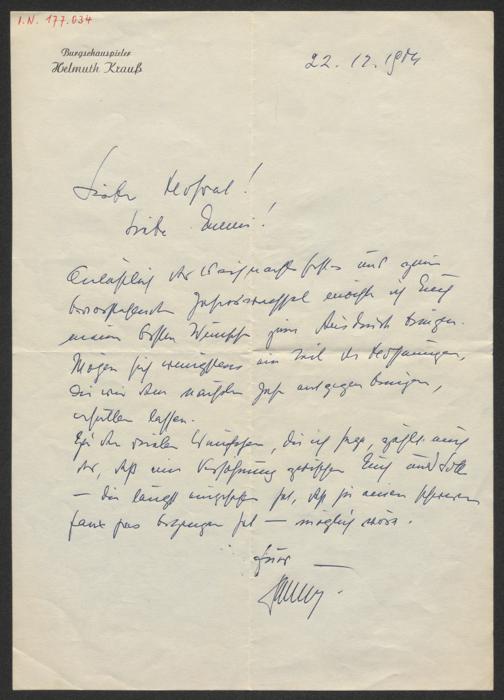 I.N. 177.034
Burgschauspieler
Helmuth Krauß
22. 12. 19
Liebe !
Liebe !
Anläßlich des Weihnachtsfestes und zum
bevorstehenden Jahreswechsel möchte ich Euch
meine besten Wünsche zum Ausdruck bringen.
Mögen sich wenigstens ein Teil der Hoffnungen,
die wir dem nächsten Jahr entgegen bringen,
erfüllen lassen.
Zu den vielen Wünschen, die ich hege, zählt auch
der, daß eine Versöhnung zwischen Euch und
— die längst eingesehen hat, daß sie einen schweren
faux pas begangen hat — möglich wäre.
Euer